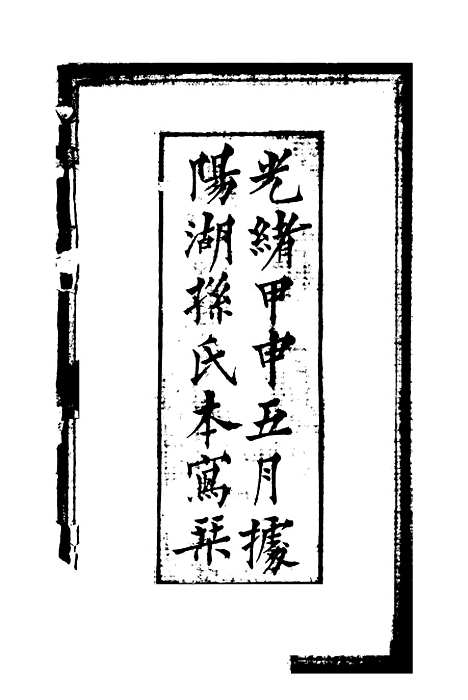 光緒甲申五月據
陽湖孫氏本寫琹